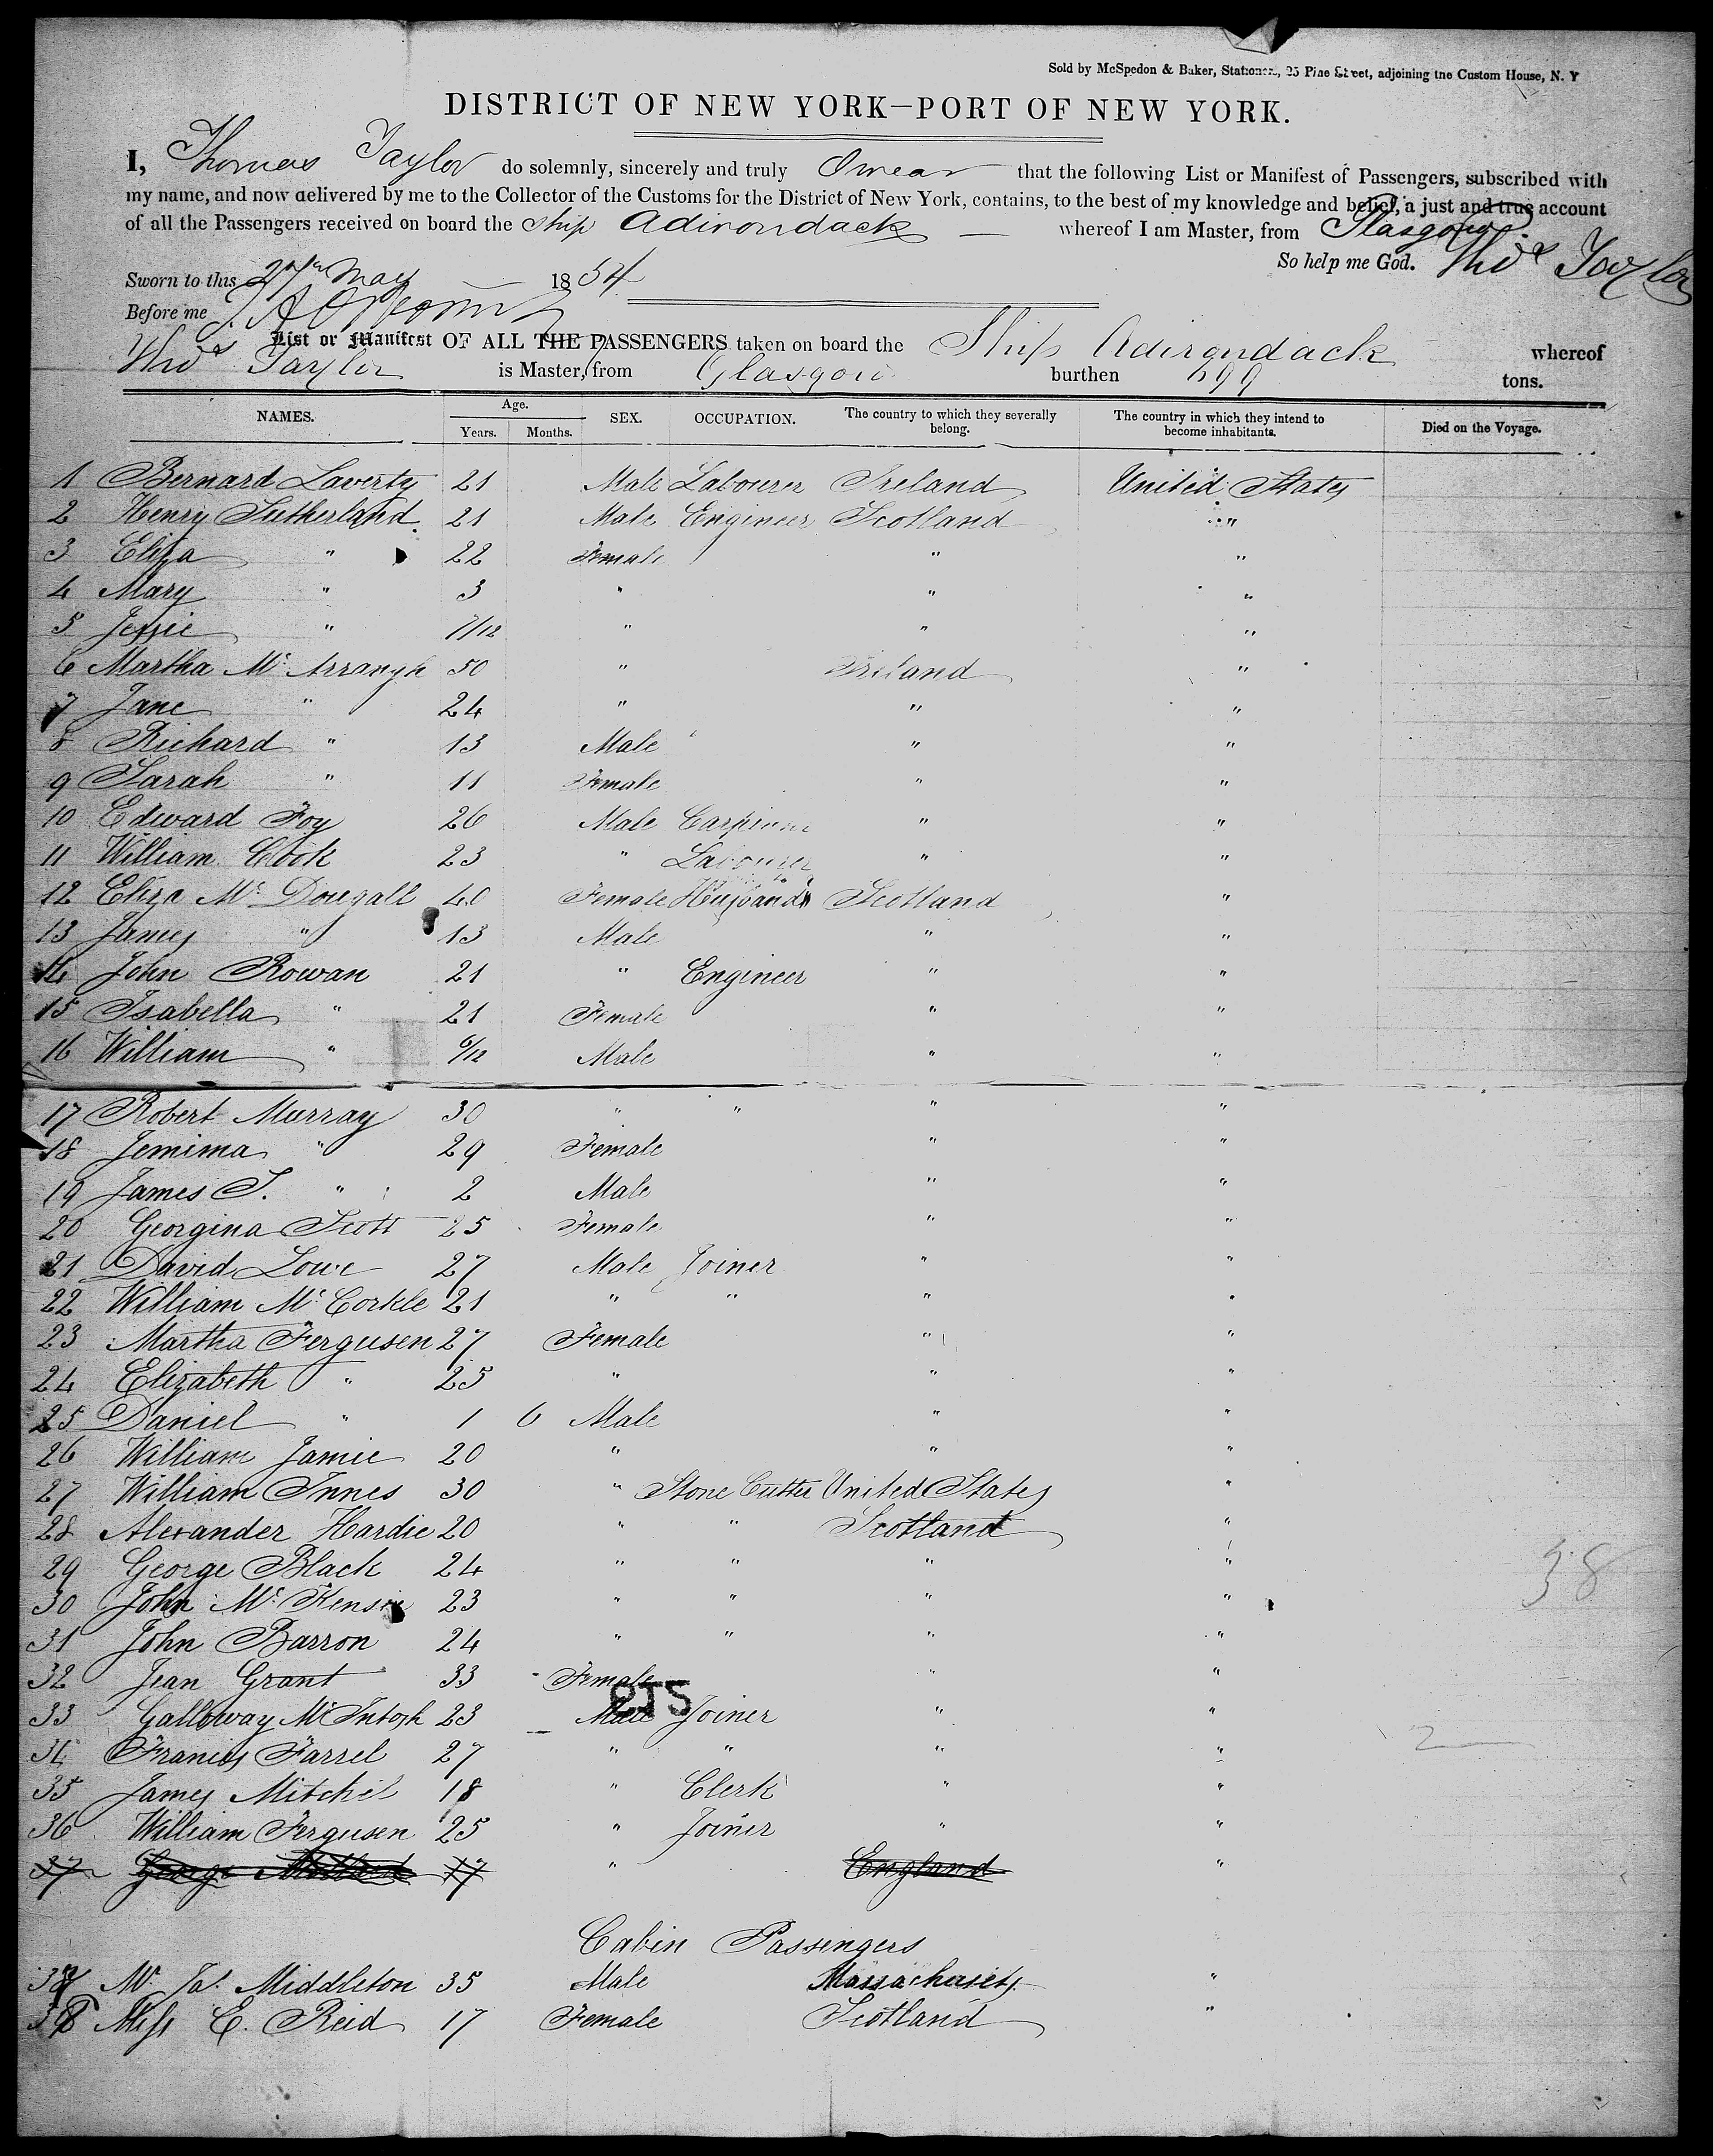 Sold by McSpedon & Baker, Stationers, 25 Pine Street, adjoining the Custom House, N. Y
DISTRICT OF NEW YORK—PORT OF NEW YORK.
I, Thomas Taylor do solemnly, sincerely and truly Swear that the following List or Manifest of Passengers, subscribed with
my name, and now delivered by me to the Collector of the Customs for the District of New York, contains, to the best of my knowledge and belief, a just and true account
of all the Passengers received on board the Ship Adirondack — whereof I am Master, from Glasgow.
So help me God. Thos Taylor
Sworn to this 27th May 1854
Before me
List or Manifest OF ALL THE PASSENGERS taken on board the Ship Adirondack whereof
Thos Taylor is Master, from Glasgow burthen 699 tons.
NAMES. Age. Years. Months. SEX. OCCUPATION. The country to which they severally belong. The country in which they intend to become inhabitants. Died on the Voyage.
1 Bernard Laverty 21 Male Labourer Ireland United States
2 Henry Sutherland 21 Male Engineer Scotland "
3 Eliza " 22 Female " "
4 Mary " 3 " " "
5 Jessie " 7/12 " " "
6 Martha Mc Arrangh 50 " Ireland "
7 Jane " 24 " " "
8 Richard " 13 Male " "
9 Sarah " 11 Female " "
10 Edward Foy 26 Male Carpenter " "
11 William Cook 23 " Labourer " "
12 Eliza Mc Dougall 40 Female Husband Scotland "
13 James " 13 Male " "
14 John Rowan 21 " Engineer " "
15 Isabella " 21 Female " "
16 William " 6/12 Male " "
17 Robert Murray 30 " " " "
18 Jemima " 29 Female " "
19 James S. " 2 Male " "
20 Georgina Scott 25 Female " "
21 David Lowe 27 Male Joiner " "
22 William Mc Corkle 21 " " " "
23 Martha Fergusen 27 Female " "
24 Elizabeth " 25 " " "
25 Daniel " 1 6 Male " "
26 William Jamie 20 " " "
27 William Innes 30 " Stone Cutter United States "
28 Alexander Hardie 20 " " Scotland "
29 George Black 24 " " " "
30 John Mc Kensie 23 " " " "
31 John Barron 24 " " " "
32 Jean Grant 33 Female " "
33 Galloway McIntosh 23 Male Joiner " "
34 Francis Farrel 27 " " " "
35 James Mitchel 18 " Clerk " "
36 William Fergusen 25 " Joiner " "
37 George 17 " England "
Cabin Passengers
37 Mr Jas. Middleton 35 Male Massachusets "
38 Miss E. Reid 17 Female Scotland "
38
2